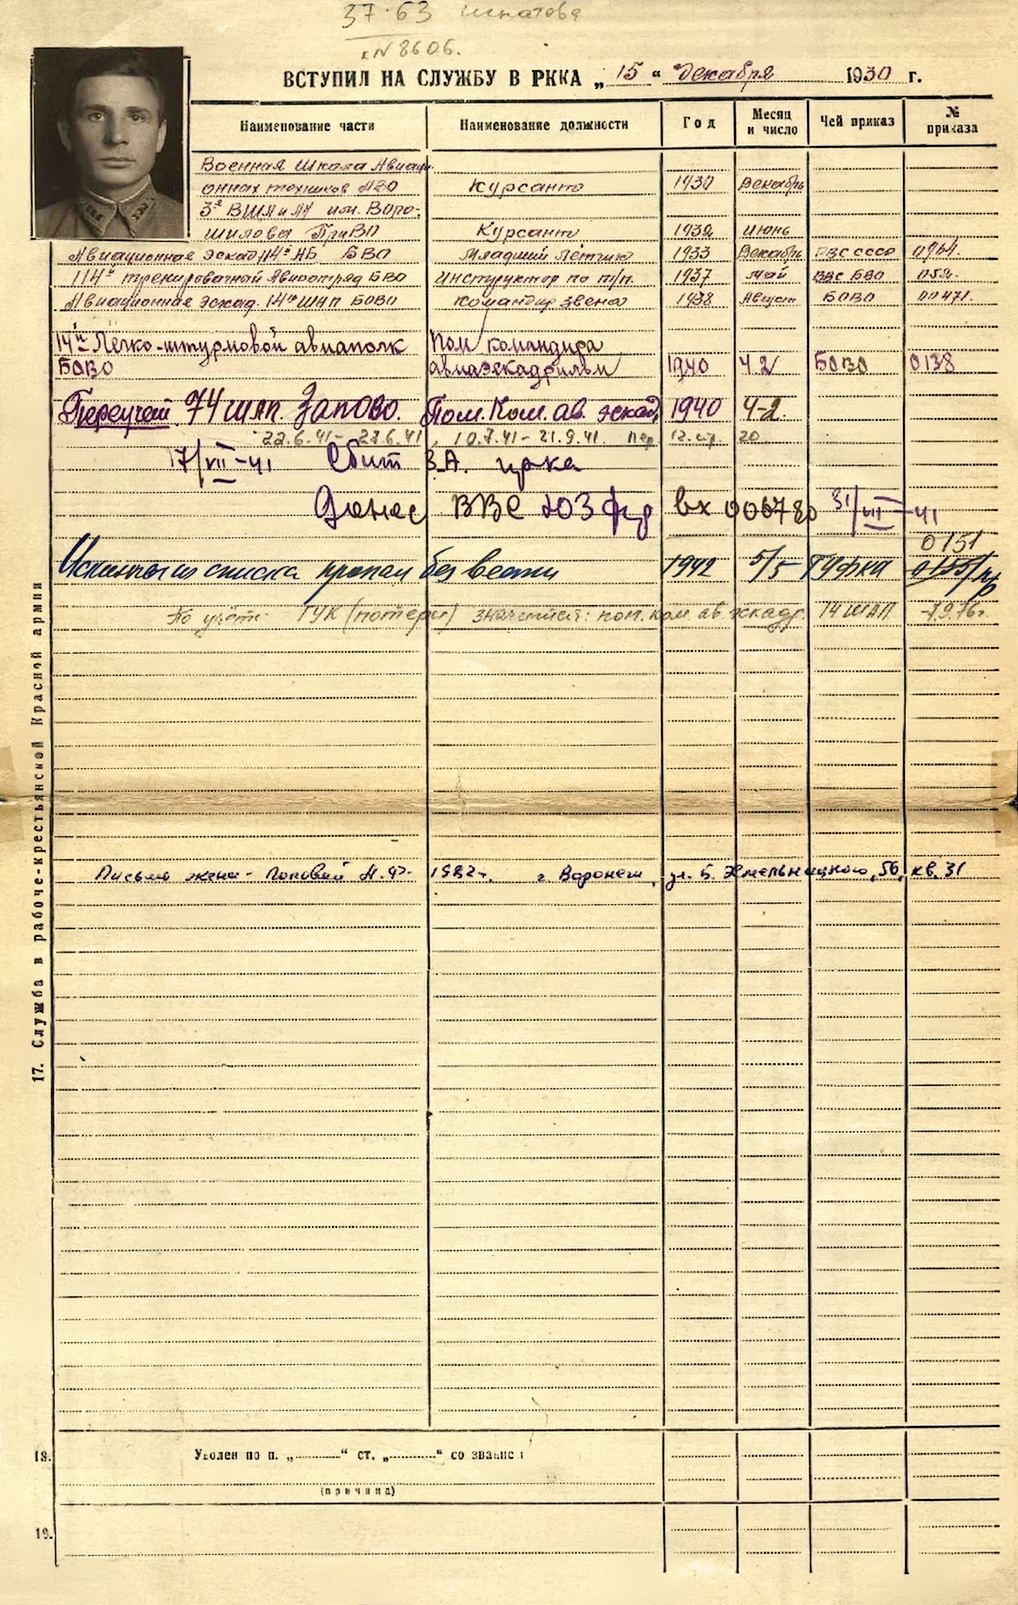 37-63
№ 8606.
ВСТУПИЛ НА СЛУЖБУ В РККА „ 15 “ декабря 1930 г.
Наименование части Наименование должности Год Месяц и число Чей приказ № приказа
Военная Школа Авиаци-
онных техников Курсант 1930 Декабрь
3я ВШЛ и ЛН им. Воро-
шилова ПриВО Курсант 1932 Июнь
Авиационная эскад. 114й АБ БВО Младший Лётчик 1933 Декабрь РВС СССР 0764.
114й тренировочный Авиоотряд БВО Инструктор по т/п. 1937 Май ВВС БВО 052.
Авиационная эскад. 14го ШАП БОВО Командир звена 1938 Август БОВО 00471.
14й Легко-штурмовой авиаполк Пом командира
БОВО авиаэскадрильи 1940 4.2 БОВО 0138
Переучет 74 шап. ЗапОВО. Пом. Ком. ав. эскад. 1940 4-2.
22.6.41- 27.6.41, 10.7.41-21.9.41. 12. стр. 20
17/VII-41 Сбит З.А. пр-ка
Донес ВВС ЮЗ фр вх 006780 31/VII-41
0151
Исключен из списка пропал без вести 1942 5/5 ГУФКА
По учёту ГУК (потери) значится: пом. ком. ав. эскадр. 74 ШАП -7.9.76г.
Письмо жена- Поповой Н.Ф. 1982г. г. Воронеж, ул. Б. Хмельницкого, 56, кв. 31
17. Служба в рабоче-крестьянской Красной армии
18. Уволен по п. „ “ ст. „ “ со звание
(причина)
19.